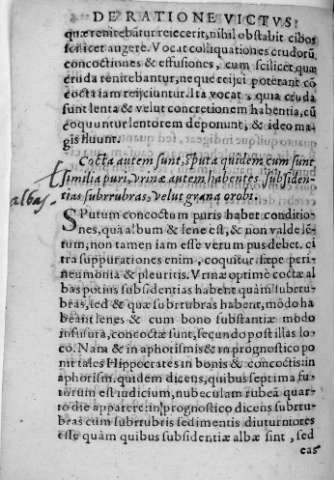 DE RATIONE VICTVS
quæ renitebãtur reiecerit, nihil obstabit cibos
scilicet augere. Vocat colliquationes crudorũ,
concoctiones & effusiones, cum scilicet quæ
cruda renitebantur, neque reijci poterant cõ
cocta iam reijciuntur. Ita vocat, quia cruda
sunt lenta & velut concretionem habentia, cũ
coquuntur lentorem deponunt, & ideo ma
gis fluunt.
Cocta autem sunt, sputa quidem cum sunt
similia puri, vrinæ autem habentes subsiden
tias subrrubras, velut grana orobi.
albas
SPutum concoctum puris habet conditio
nes, quia album & lene est, & non valde lẽ
tum, non tamen iam esse verum pus debet. ci
tra suppurationes enim, coquitur sæpe peri-
neumonia & pleuritis. Vrinæ optimè coctæ al
bas potius subsidentias habent quàm subrru-
bras, sed & quæ subrrubras habent, modo ha
beant lenes & cum bono substantiæ modo
infusura, concoctæ sunt, secundo post illas lo
co. Nam & in aphorismis & in prognostico po
nit tales Hippocrates in bonis & concoctis: in
aphorism. quidem dicens, quibus septima fu-
torum est iudicium, nubeculam rubeã quar-
to die apparere: in prognostico dicens subrru-
bas cum subrrubris sedimentis diuturniores
esse quàm quibus subsidentiæ albæ sint, sed
eas